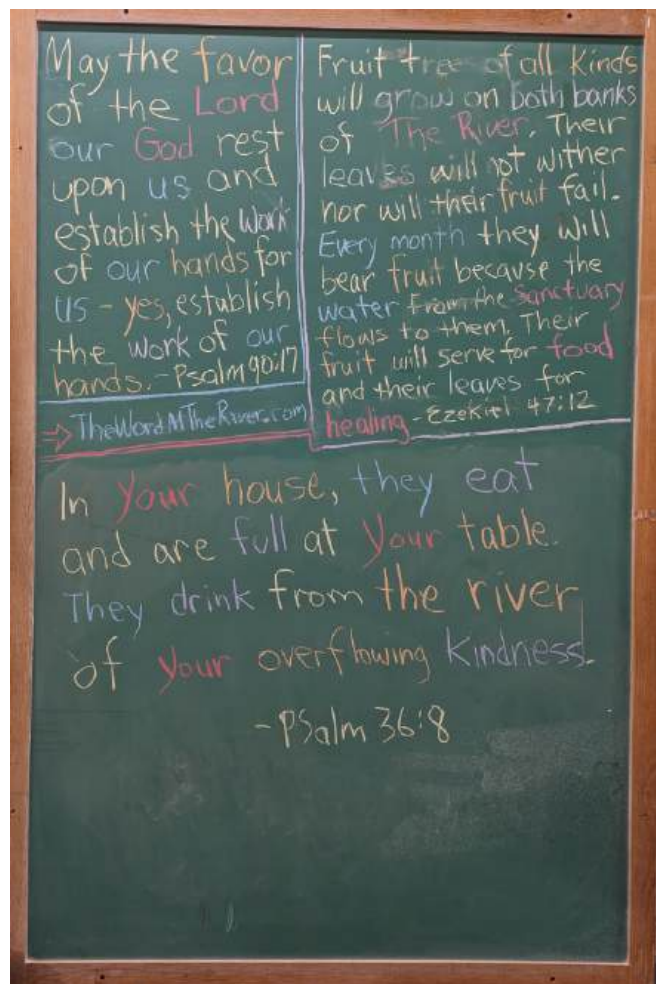 May the favor
of the Lord
our God rest
upon us and
establish the work
of our hands for
us - yes, establish
the work of our
hands. - Psalm 90:17
TheWordAtTheRiver.com
Fruit trees of all kinds
will grow on both banks
of The River. Their
leaves will not wither
nor will their fruit fail.
Every month they will
bear fruit because the
water From the Sanctuary
flows to them. Their
fruit will serve for food
and their leaves for
healing - Ezekiel 47:12
In Your house, they eat
and are full at Your table.
They drink from the river
of Your overflowing kindness.
- PSalm 36:8